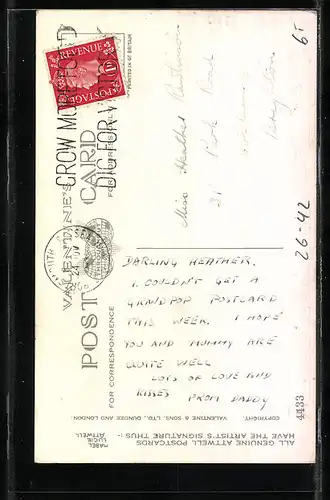 REVENUE
1D
POSTAGE
PRINTED IN GT BRITAIN
GROW MORE FOOD
DIG FOR
VALENTINE'S
POST CARD
FOR CORRESPONDENCE
Miss Heather
31 Park Road
6T
26-42
DARLING HEATHER,
I COULDN'T GET A
GRANDPOP POSTCARD
THIS WEEK. I HOPE
YOU AND MUMMY ARE
QUITE WELL
LOTS OF LOVE AND
KISSES FROM DADDY
4433
COPYRIGHT. VALENTINE & SONS, LTD., DUNDEE AND LONDON
ALL GENUINE ATTWELL POSTCARDS
HAVE THE ARTIST'S SIGNATURE THUS :-
MABEL
LUCIE
ATTWELL